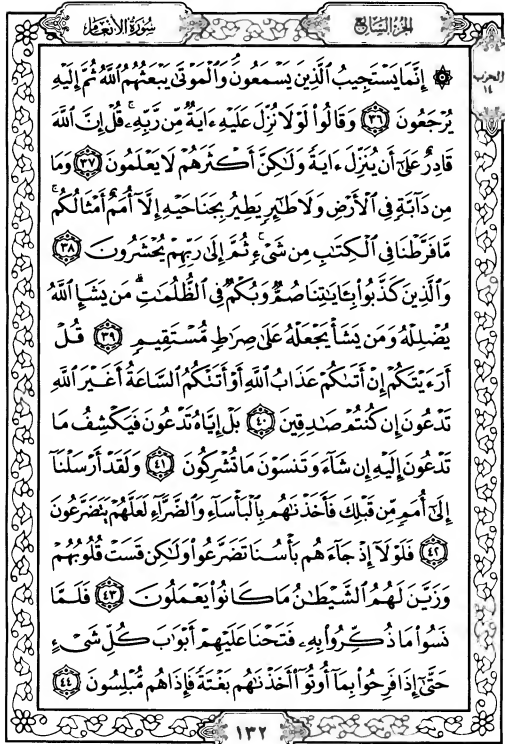 سُورَةُ الأَنعَامِ
الجُزءُ السَّابِعُ
الحزب
١٤
۞ إِنَّمَا يَسْتَجِيبُ ٱلَّذِينَ يَسْمَعُونَۘ وَٱلْمَوْتَىٰ يَبْعَثُهُمُ ٱللَّهُ ثُمَّ إِلَيْهِ
يُرْجَعُونَ ٣٦ وَقَالُوا۟ لَوْلَا نُزِّلَ عَلَيْهِ ءَايَةٌ مِّن رَّبِّهِۦۚ قُلْ إِنَّ ٱللَّهَ
قَادِرٌ عَلَىٰٓ أَن يُنَزِّلَ ءَايَةً وَلَـٰكِنَّ أَكْثَرَهُمْ لَا يَعْلَمُونَ ٣٧ وَمَا
مِن دَآبَّةٍ فِى ٱلْأَرْضِ وَلَا طَـٰٓئِرٍ يَطِيرُ بِجَنَاحَيْهِ إِلَّآ أُمَمٌ أَمْثَالُكُمۚ
مَّا فَرَّطْنَا فِى ٱلْكِتَـٰبِ مِن شَىْءٍۚ ثُمَّ إِلَىٰ رَبِّهِمْ يُحْشَرُونَ ٣٨
وَٱلَّذِينَ كَذَّبُوا۟ بِـَٔايَـٰتِنَا صُمٌّ وَبُكْمٌ فِى ٱلظُّلُمَـٰتِۗ مَن يَشَإِ ٱللَّهُ
يُضْلِلْهُ وَمَن يَشَأْ يَجْعَلْهُ عَلَىٰ صِرَٰطٍ مُّسْتَقِيمٍ ٣٩ قُلْ
أَرَءَيْتَكُمْ إِنْ أَتَىٰكُمْ عَذَابُ ٱللَّهِ أَوْ أَتَتْكُمُ ٱلسَّاعَةُ أَغَيْرَ ٱللَّهِ
تَدْعُونَ إِن كُنتُمْ صَـٰدِقِينَ ٤٠ بَلْ إِيَّاهُ تَدْعُونَ فَيَكْشِفُ مَا
تَدْعُونَ إِلَيْهِ إِن شَآءَ وَتَنسَوْنَ مَا تُشْرِكُونَ ٤١ وَلَقَدْ أَرْسَلْنَآ
إِلَىٰٓ أُمَمٍ مِّن قَبْلِكَ فَأَخَذْنَـٰهُم بِٱلْبَأْسَآءِ وَٱلضَّرَّآءِ لَعَلَّهُمْ يَتَضَرَّعُونَ
٤٢ فَلَوْلَآ إِذْ جَآءَهُم بَأْسُنَا تَضَرَّعُوا۟ وَلَـٰكِن قَسَتْ قُلُوبُهُمْ
وَزَيَّنَ لَهُمُ ٱلشَّيْطَـٰنُ مَا كَانُوا۟ يَعْمَلُونَ ٤٣ فَلَمَّا
نَسُوا۟ مَا ذُكِّرُوا۟ بِهِۦ فَتَحْنَا عَلَيْهِمْ أَبْوَٰبَ كُلِّ شَىْءٍ
حَتَّىٰٓ إِذَا فَرِحُوا۟ بِمَآ أُوتُوٓا۟ أَخَذْنَـٰهُم بَغْتَةً فَإِذَا هُم مُّبْلِسُونَ ٤٤
١٣٢